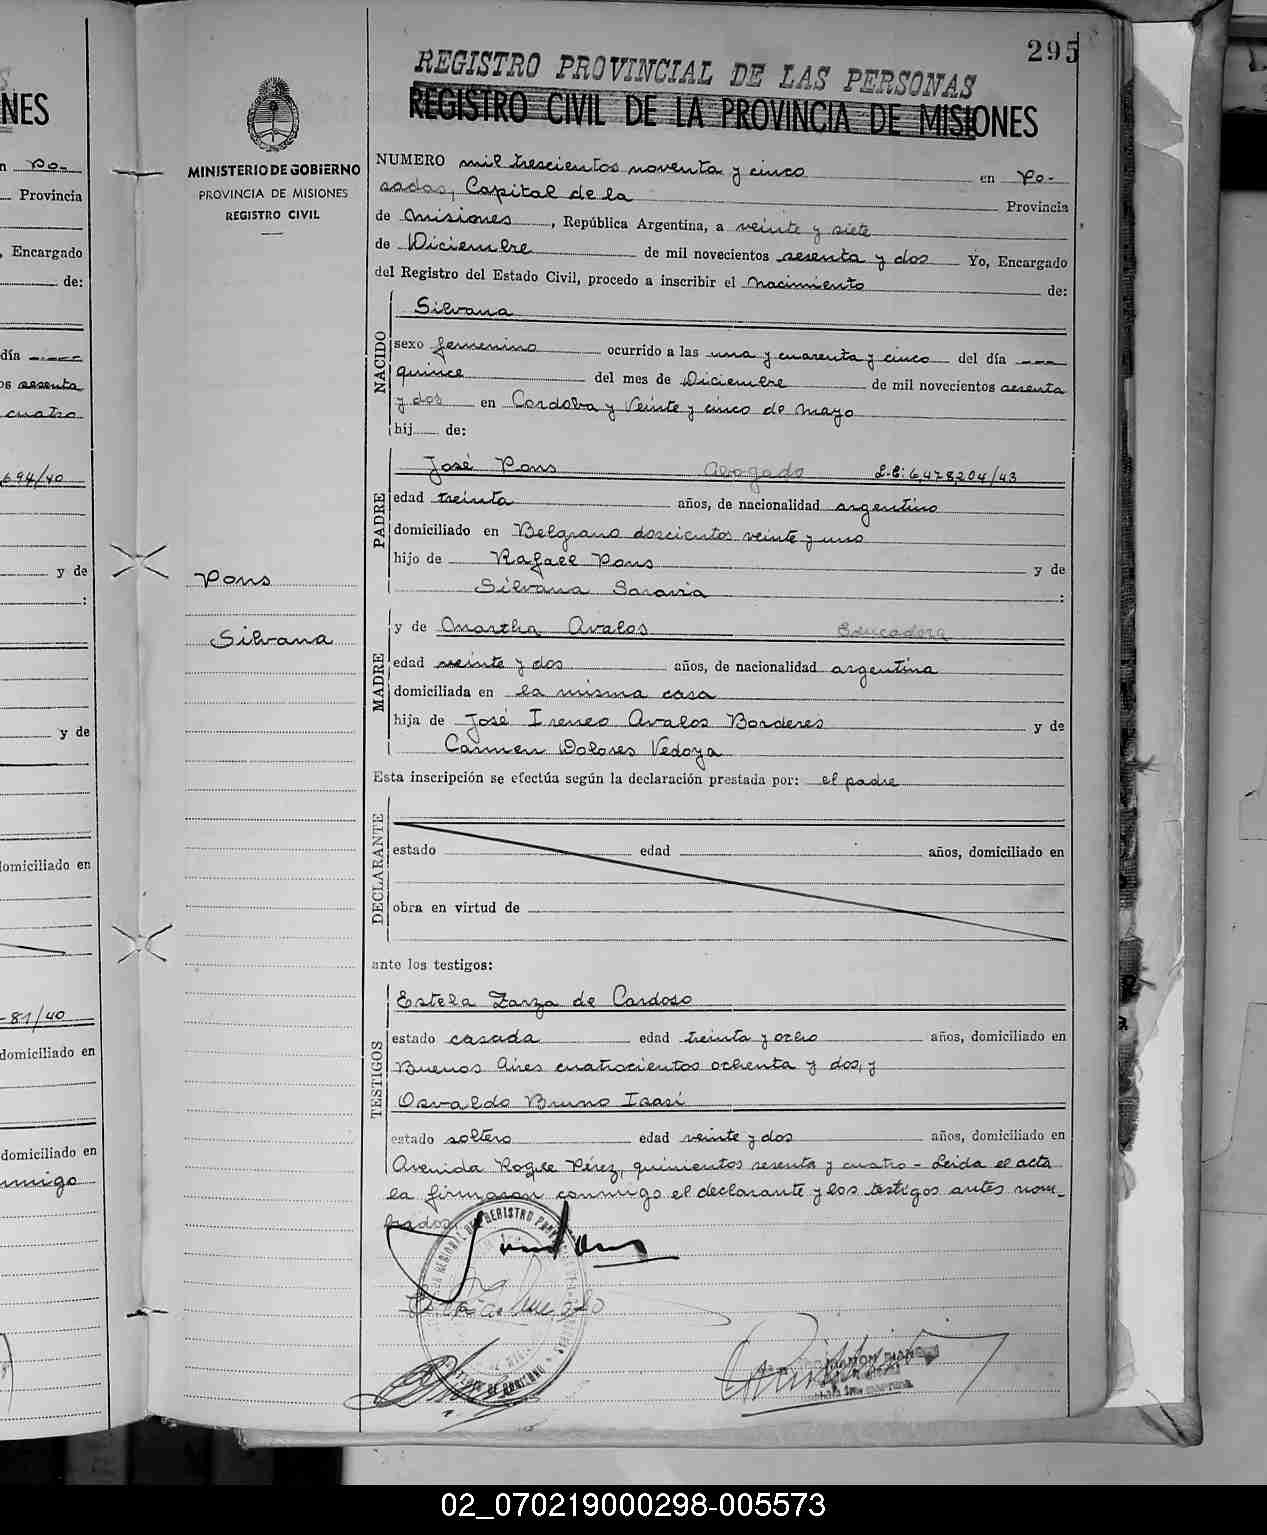 295
REGISTRO PROVINCIAL DE LAS PERSONAS
REGISTRO CIVIL DE LA PROVINCIA DE MISIONES
MINISTERIO DE GOBIERNO
PROVINCIA DE MISIONES
REGISTRO CIVIL
NUMERO mil trescientos noventa y cinco en Po-
sadas, Capital de la Provincia
de Misiones, República Argentina, a veinte y siete
de Diciembre de mil novecientos sesenta y dos Yo, Encargado
del Registro del Estado Civil, procedo a inscribir el nacimiento de:
NACIDO
Silvana
sexo femenino ocurrido a las una y cuarenta y cinco del día ---
quince del mes de Diciembre de mil novecientos sesenta
y dos en Cordoba y Veinte y cinco de Mayo
hij de:
PADRE
José Pons Abogado L.E: 6,478,204/43
edad treinta años, de nacionalidad argentino
domiciliado en Belgrano doscientos veinte y uno
hijo de Rafael Pons y de
Silvana Saravia :
Pons
Silvana
MADRE
y de Martha Avalos Educadora
edad veinte y dos años, de nacionalidad argentina
domiciliada en la misma casa
hija de José Ireneo Avalos Borderes y de
Carmen Dolores Vedoya
Esta inscripción se efectúa según la declaración prestada por: el padre
DECLARANTE
estado edad años, domiciliado en
obra en virtud de
ante los testigos:
TESTIGOS
Estela Zarza de Cardoso
estado casada edad treinta y ocho años, domiciliado en
Buenos Aires cuatrocientos ochenta y dos, y
Osvaldo Bruno Isasi
estado soltero edad veinte y dos años, domiciliado en
Avenida Roque Pérez, quinientos sesenta y cuatro - Leida el acta
la firmaron conmigo el declarante y los testigos antes nom-
brados.
NES
n Po-
Provincia
, Encargado
de:
día ----
os sesenta
cuatro
694/40
y de
:
y de
domiciliado en
-81/40
domiciliado en
domiciliado en
nmigo
02_070219000298-005573